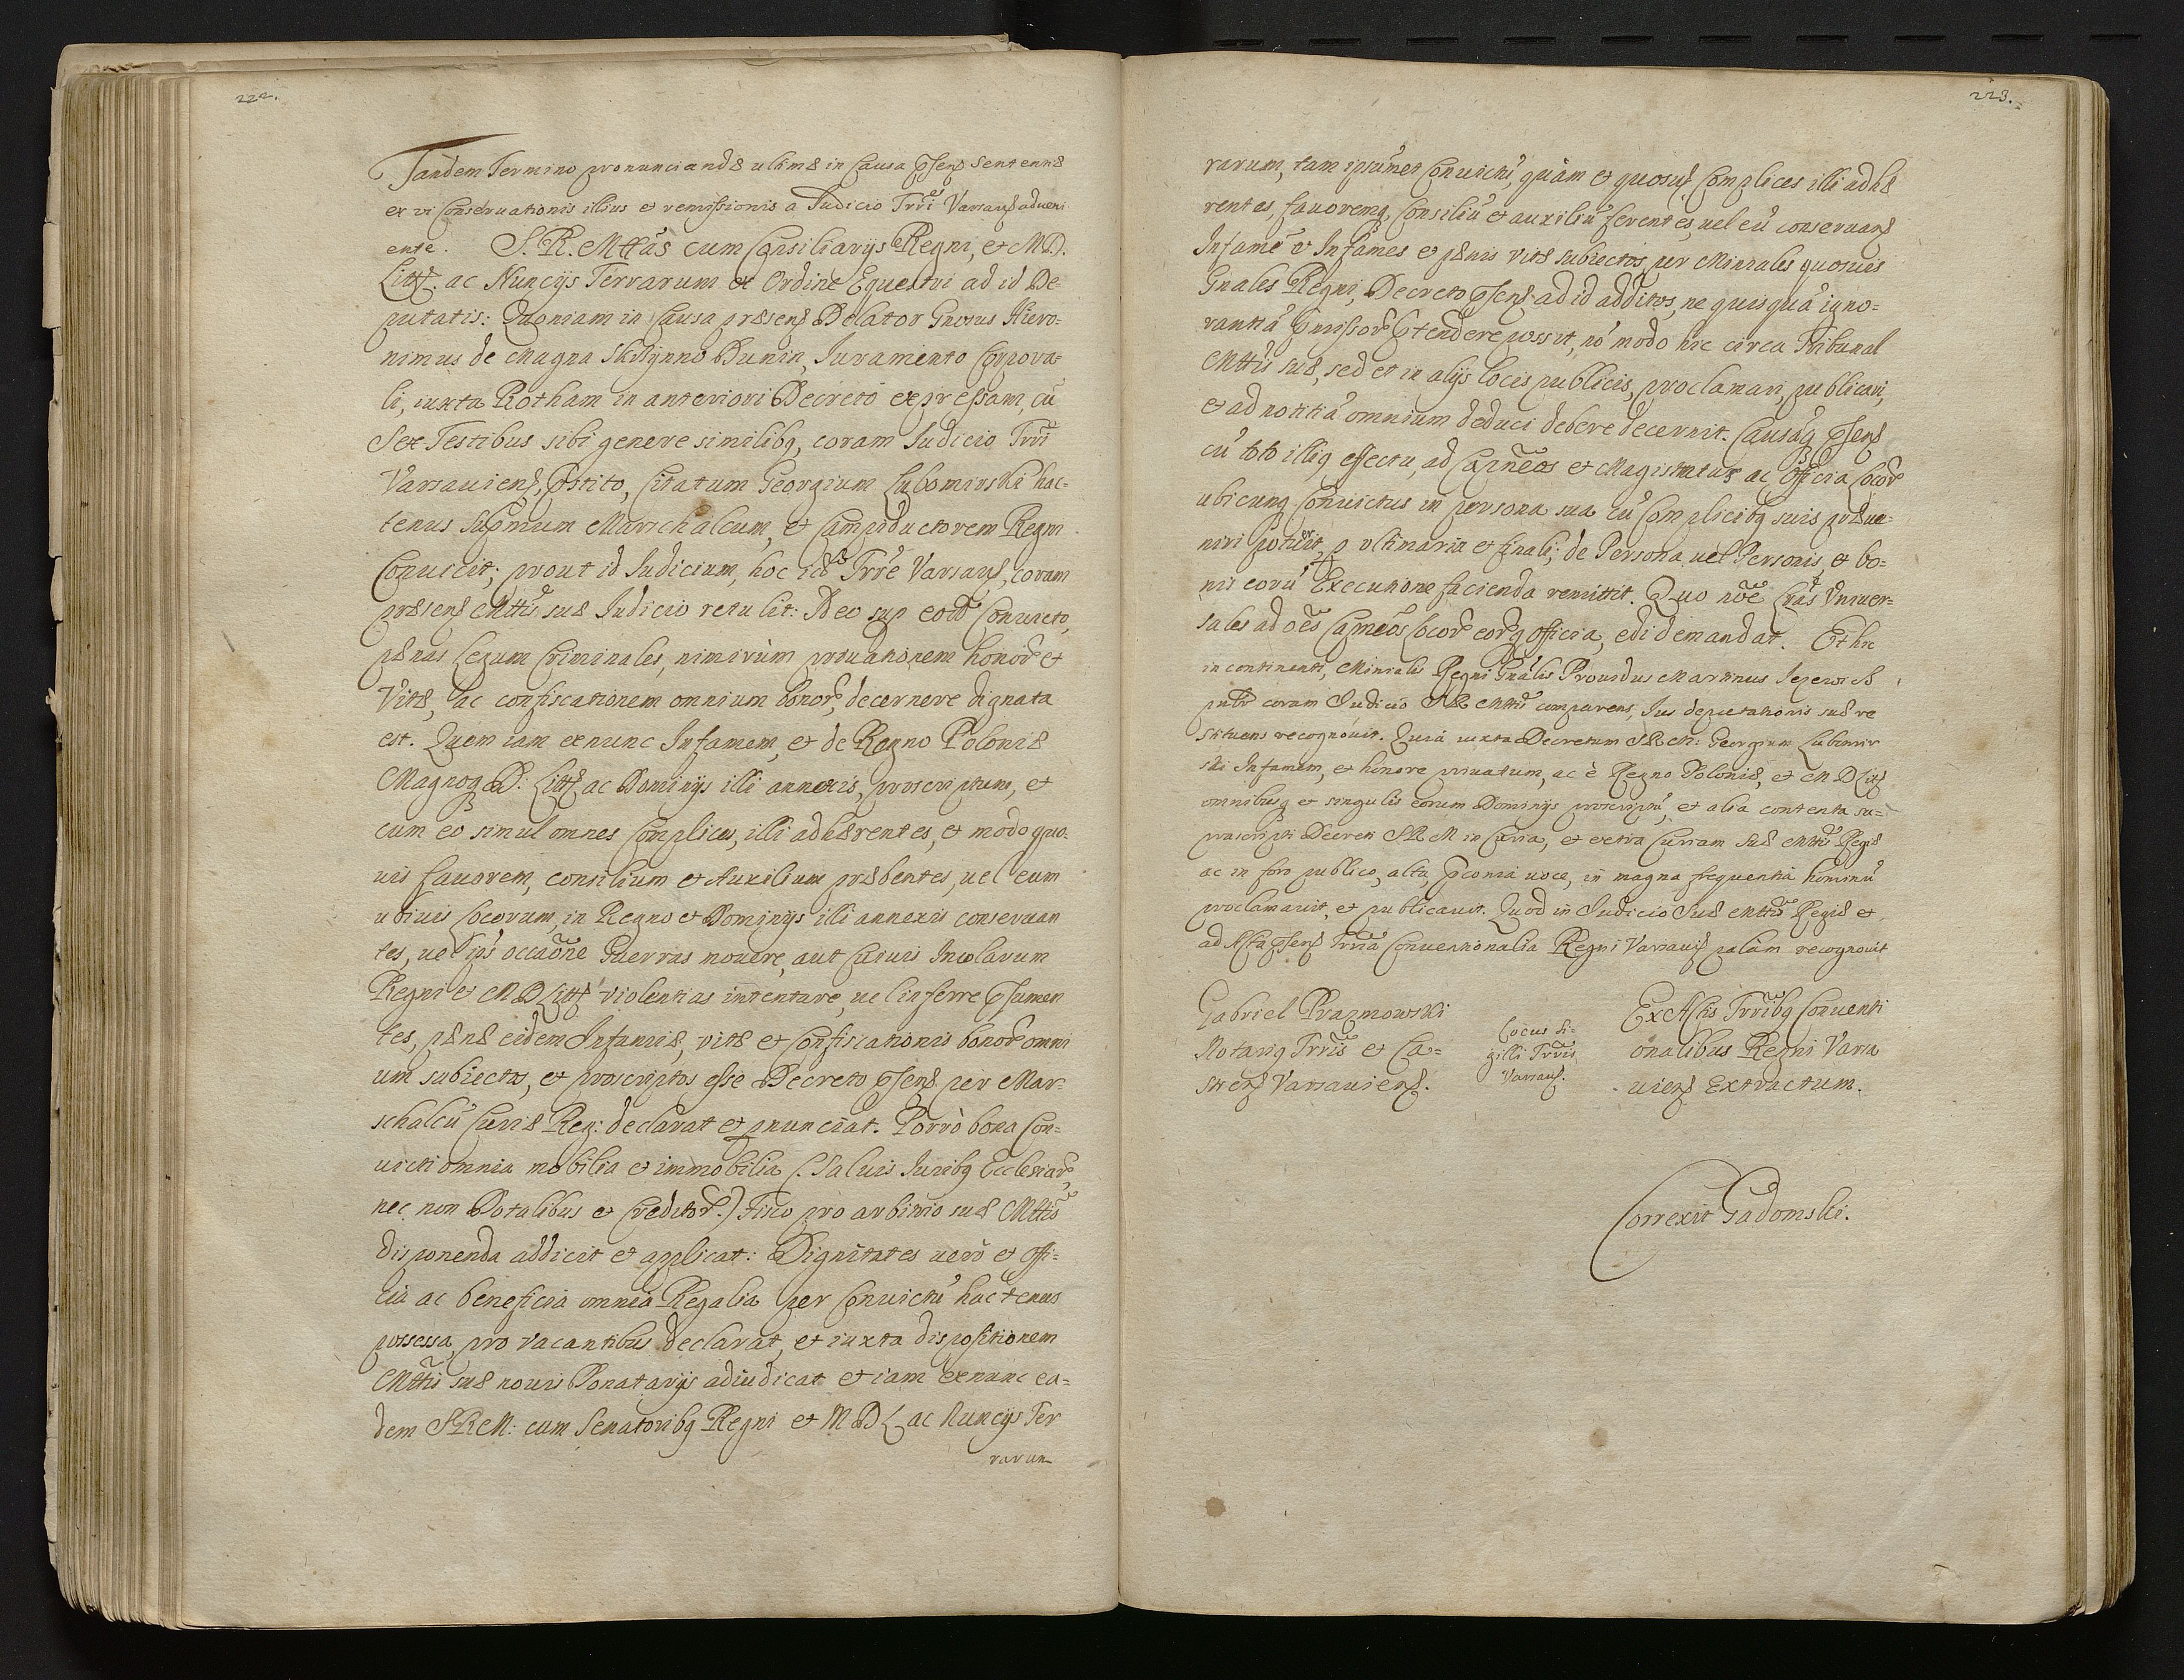 222.
Tandem Termino pronunciandæ ultimæ in Causa p̃sens Sententiæ
ex vi Conservationis illius et remissionis a Judicio Trr̃i Varsaviens adveni
ente. S. R. Mttãs cum Consiliarijs Regni, et M. D.
Litt. ac Nuncijs Terrarum ex Ordine Equestri ad id De-
putatis: Quoniam in Causa præsens Delator Gnosus Hiero-
nimus de Magna Skrzynno Dunin, Juramento Corpora-
li, iuxta Rotham in anteriori Decreto expressam, cũ
Sex Testibus sibi genere similibq, coram Judicio Trr̃i
Varsaviens, p̃stito, Citatum Georgium Lubomirski hac-
tenus Sup̃mum Marschalcum, et Campiductorem Regni
Convicit; prout id Judicium, hoc id Trr̃e Varsavs, coram
præsens Mttis suæ Judicio retulit: Ideo sup eod̃ Convicto,
pænas Legum Criminales, nimirùm privationem honor et
Vitæ, ac confiscationem omnium bonor, decernere dignata
est. Quem iam exnunc Infamem, et de Regno Poloniæ
Magnoq D: Litt. ac Dominijs illi annexis, proscriptum, et
cum eo simul omnes Complices, illi adhærentes, et modo quo-
vis favorem, consilium et Auxilium præbentes, vel eum
ubivis Locorum, in Regno et Dominijs illi annexis conservan
tes, vel ips' occaõne Guerras movere, aut Cuivis Incolarum
Regni et M D Litt violentias intentare, vel inferre p̃sumen
tes, pænæ eidem Infamiæ, vitæ et Confiscationis bonor omni
um subiectos, et proscriptos esse Decreto p̃sens per Mar-
schalcũ Curiæ Reg: declarat et pnunciat. Porrò bona Con-
victi omnia mobilia et immobilia (Salvis Juribq Ecclesiar,
nec non Dotalibus et Creditor) Fisco pro arbitrio suæ Mttis
disponenda addicit et applicat: Dignitates verò et Offi-
cia ac beneficia omnia Regalia per Convictũ hactenus
possessa, pro vacantibus declarat, et iuxta dispositionem
Mttis suæ novis Donatarijs adiudicat et iam exnunc ea-
dem S R M: cum Senatoribq Regni et M D L ac Nuncijs Ter
rarum
223.
rarum, tam ipsũmet Convictũ, quàm et quosvis Complices illi adhæ
rentes, favoremq, Consiliũ et auxiliũ ferentes, vel eũ conservans
Infamẽ et Infames et pænis vitæ subiectos, per Ministeriales quosvis
Gnales Regni, Decreto p̃sens ad id additos, ne quisquã igno-
rantiã p̃missor p̃tendere possit, nõ modo hic circa Tribunal
Mttis suæ, sed et in alijs locis publicis, proclamari, publicari,
et ad notitiã omnium deduci debere decernit. Causãq p̃sens
cũ toto illiq effectu, ad Capñeos et Magistratus ac Officia Locor
ubicunq Convictus in persona sua cũ Complicibq suis præve-
niri potuerit, p ultimaria et finali, de Persona vel Personis, et bo-
nis eorũ Executione facienda remittit. Quo nõe Lrãs Univer-
sales ad oẽs Capñeos Locor eorq officia, edi demandat. Et hic
in continenti, Minialis Regni Gnalis Providus Martinus Jezewich
pntr coram Judicio S R Mttis comparens, Jus deputationis suæ re
stituens recognovit. Quia iuxta Decretum S R M: Georgium Lubomir
ski Infamem, et honore privatum, ac è Regno Poloniæ, et M D Litt
omnibusq et singulis eorum Dominijs proscriptũ, et alia contenta su-
prascripti Decreti S R M in Curia, et extra Curiam Suæ Mttis Regiæ
ac in foro publico, alta, p̃conia voce, in magna frequentia hominũ
proclamavit, et publicavit. Quod in Judicio Suæ Mttis Regiæ et
ad Acta p̃sens Trr̃ia Conventionalia Regni Varsavis palàm recognovit
Gabriel Prazmowski
Notariq Trr̃is et Ca-
strens Varsaviens.
Locus Si-
gilli Trr̃is
Varsavs.
Ex Actis Trr̃ibq Conventi
onalibus Regni Varsa
viens Extractum.
Correxit Gadomski.